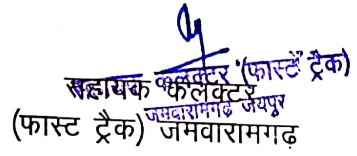 सहायक कलेक्टर (फास्ट ट्रैक)
जमवारामगढ़ जयपुर
सहायक कलेक्टर
(फास्ट ट्रैक) जमवारामगढ़